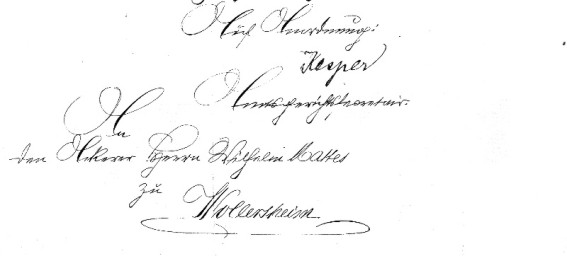 Auf Anordnung:
Kesper
Amtsgerichtssecretair.
An
den Ackerer Herrn Wilhelm Mattes
zu
Wollersheim